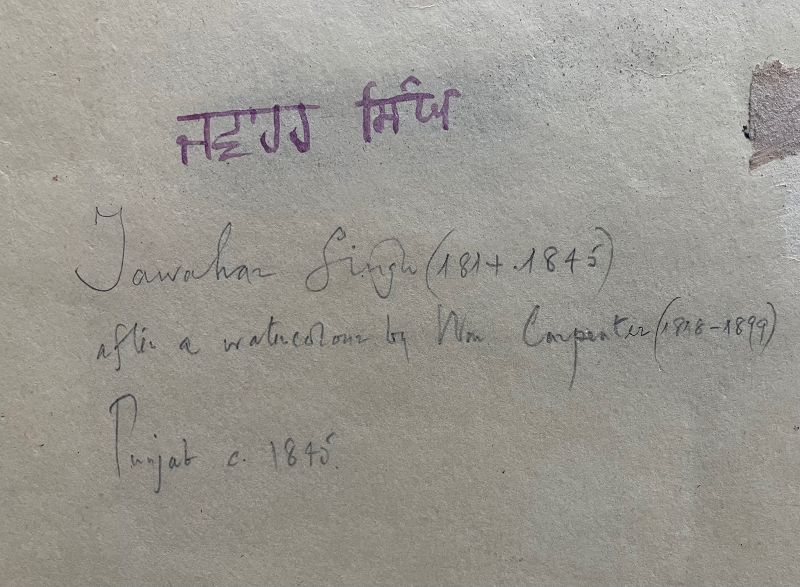 ਜਵਾਹਰ ਸਿੰਘ
Jawahar Singh (1814.1845)
after a watercolour by Wm Carpenter (1818-1899)
Punjab c. 1845.